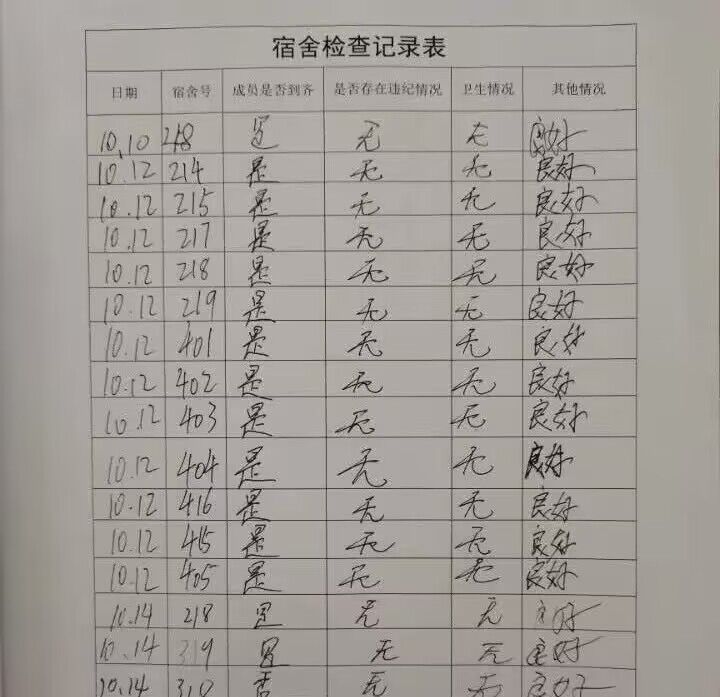 宿舍检查记录表
日期 宿舍号 成员是否到齐 是否存在违纪情况 卫生情况 其他情况
10.10 218 是 无 无 良好
10.12 214 是 无 无 良好
10.12 215 是 无 无 良好
10.12 217 是 无 无 良好
10.12 218 是 无 无 良好
10.12 219 是 无 无 良好
10.12 401 是 无 无 良好
10.12 402 是 无 无 良好
10.12 403 是 无 无 良好
10.12 404 是 无 无 良好
10.12 416 是 无 无 良好
10.12 415 是 无 无 良好
10.12 405 是 无 无 良好
10.14 218 是 无 无 良好
10.14 319 是 无 无 良好
10.14 310 否 无 无 良好